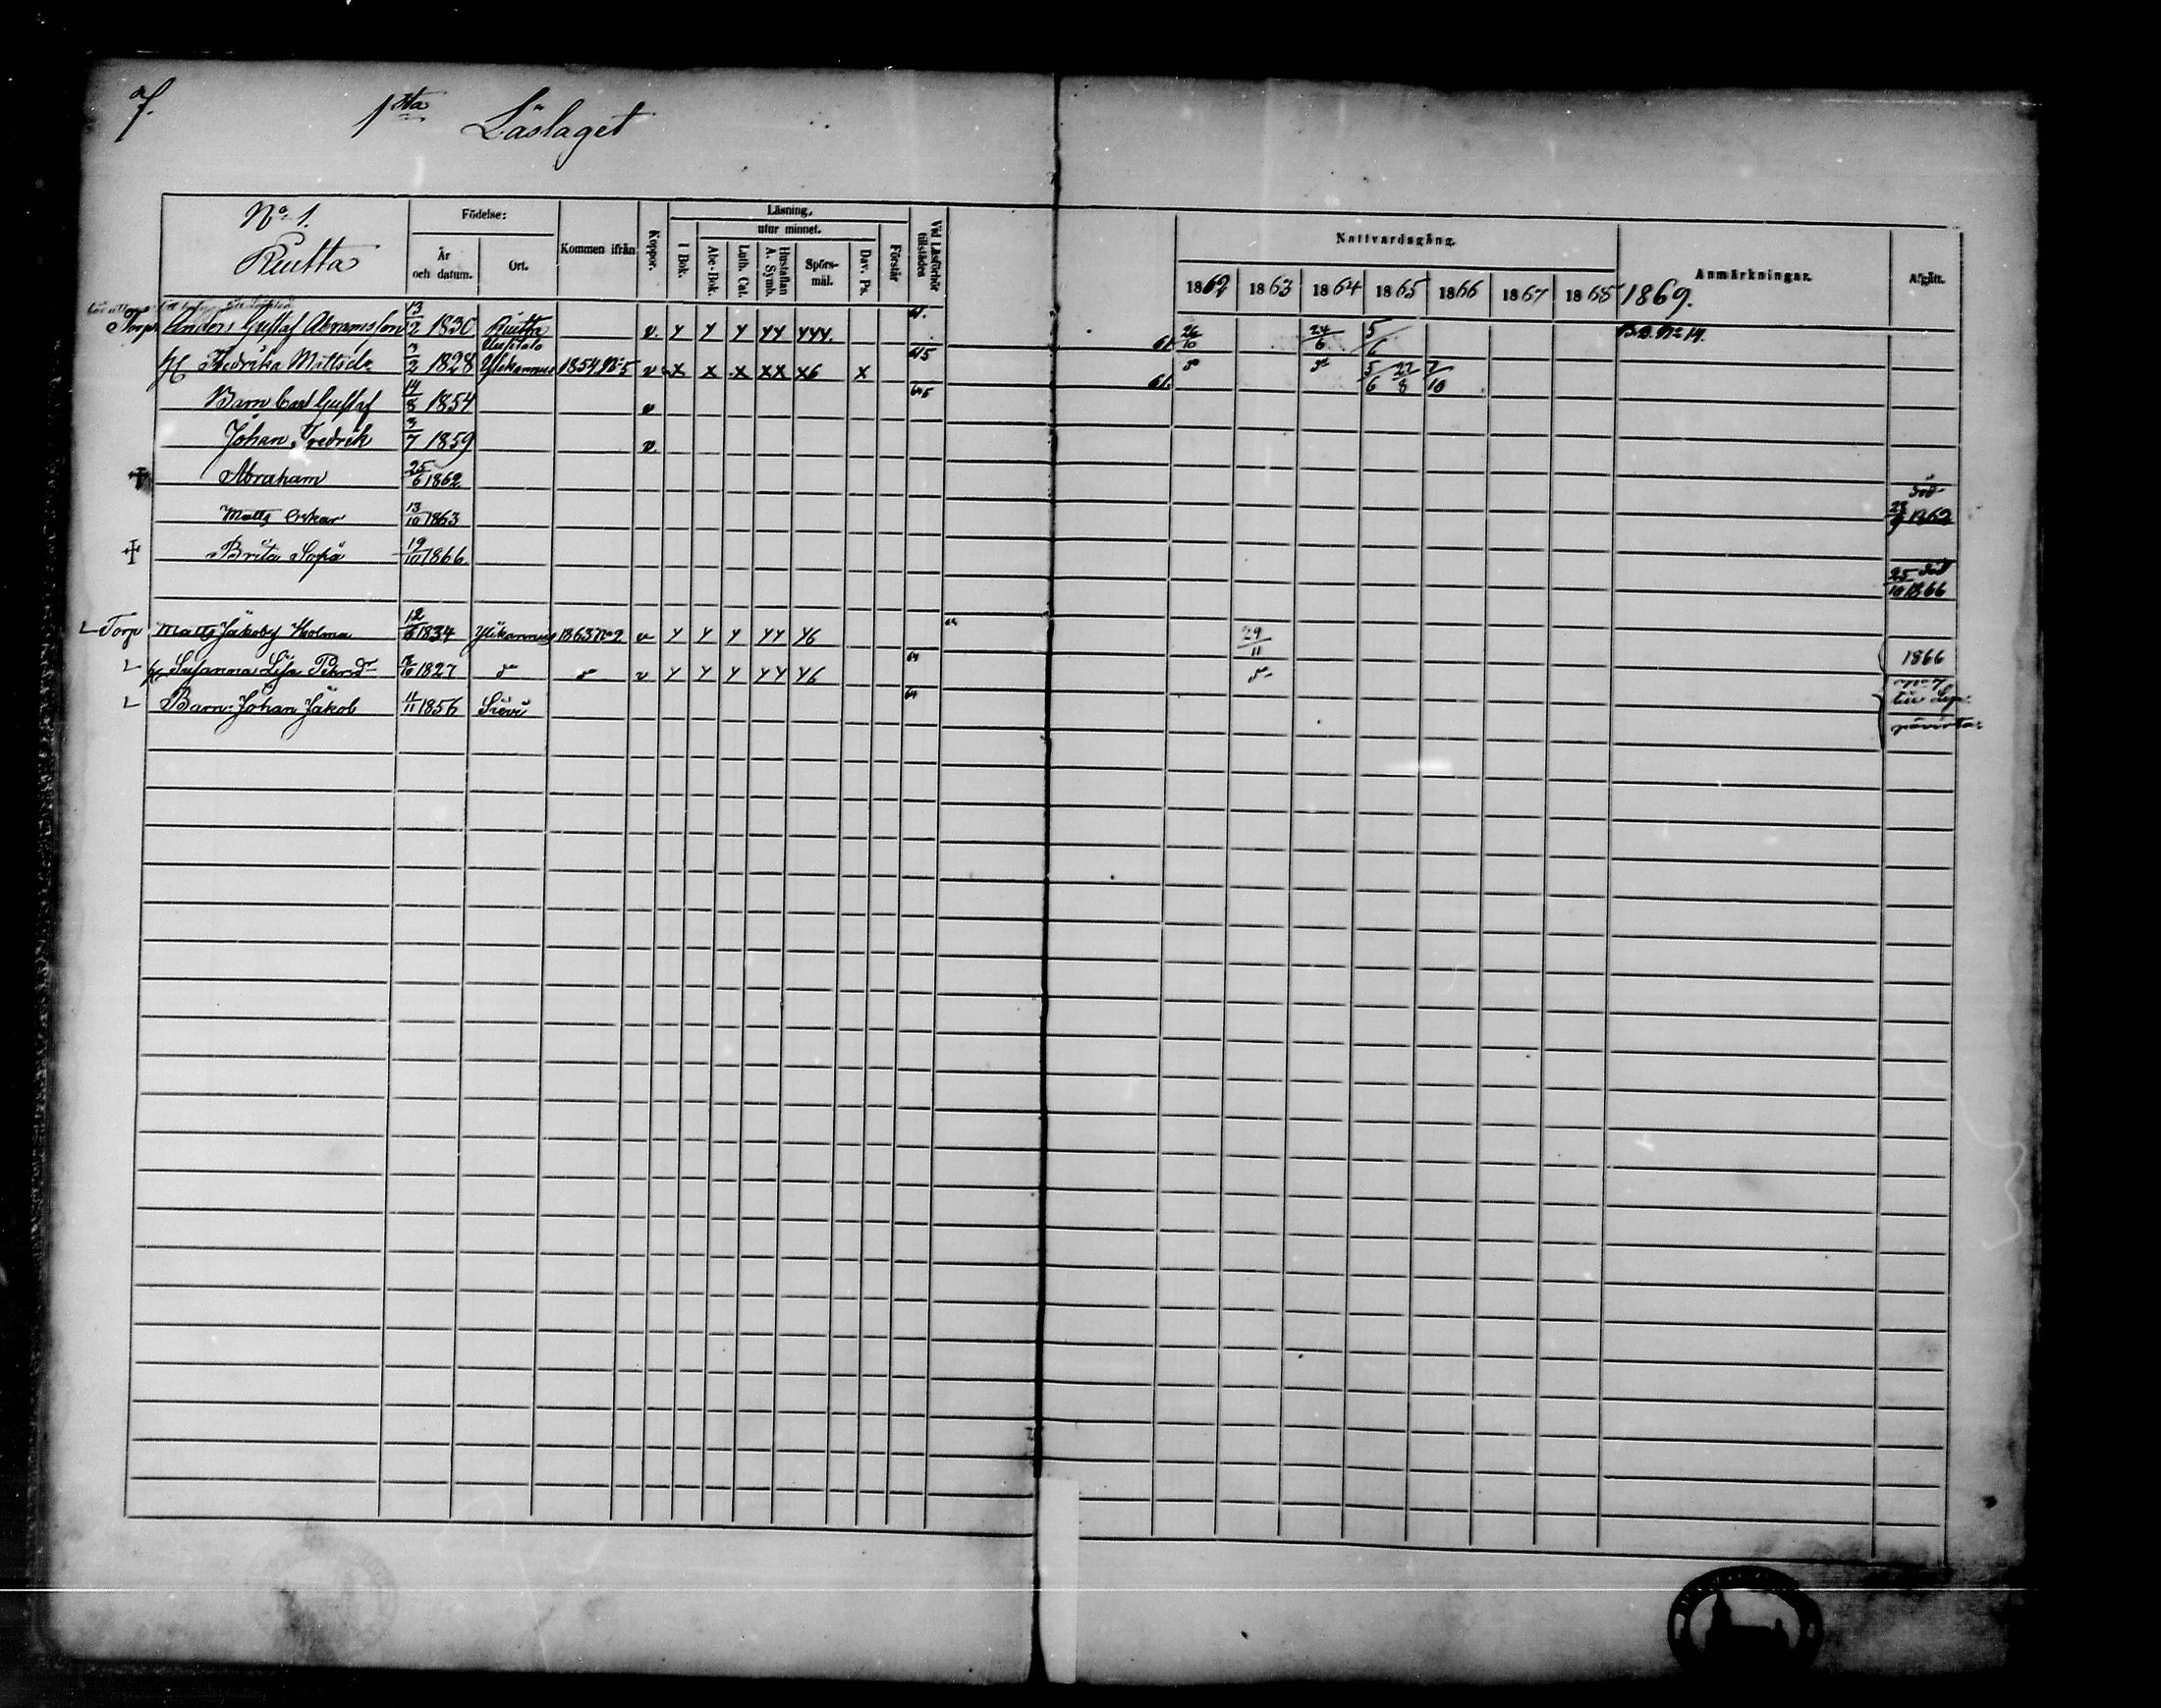 7.
1sta Läslaget
No 1.
Ruutta
Födelse:
År och datum.
Ort.
Kommen ifrån
Koppor.
Läsning,
utur minnet.
I Bok.
Abc-Bok.
Luth. Cat.
Hustaflan A. Symb.
Spörsmål.
Dav. Ps.
Förstår
Vid Läsförhör tillstädes
Nattvardsgång.
1862 1863 1864 1865 1866 1867 1868 1869.
Anmärkningar.
Afgått.
Torp. Anders Gustaf Abramsson 13/2 1830 Ruutta v. y y y yy yyy. 61. 61. 26/10 24/6 5/6 B.B. No 14.
H. Fredrika Mattsdr 3/2 1828 Ylikannus 1854 No 5 v x x x xx x6 x 615 61. do do 5/6 27/8 7/10
Barn Carl Gustaf 14/8 1854 v 645
Johan Fredrik 3/7 1859 v.
Abraham 25/6 1862 död 28/9 1862
Matts Oskar 13/10 1863
Brita Sofia 19/10 1866. död 25/10 1866
Torp Matts Jakobss Holma 12/6 1834 Ylikannus 1863 No 2 v y y y yy y6 64 29/11
H. Susanna Lisa Pehrsdr 8/10 1827 do do v y y y yy y6 64 do 1866
Barn: Johan Jakob 11/11 1856 Sievi 64 No 7 till